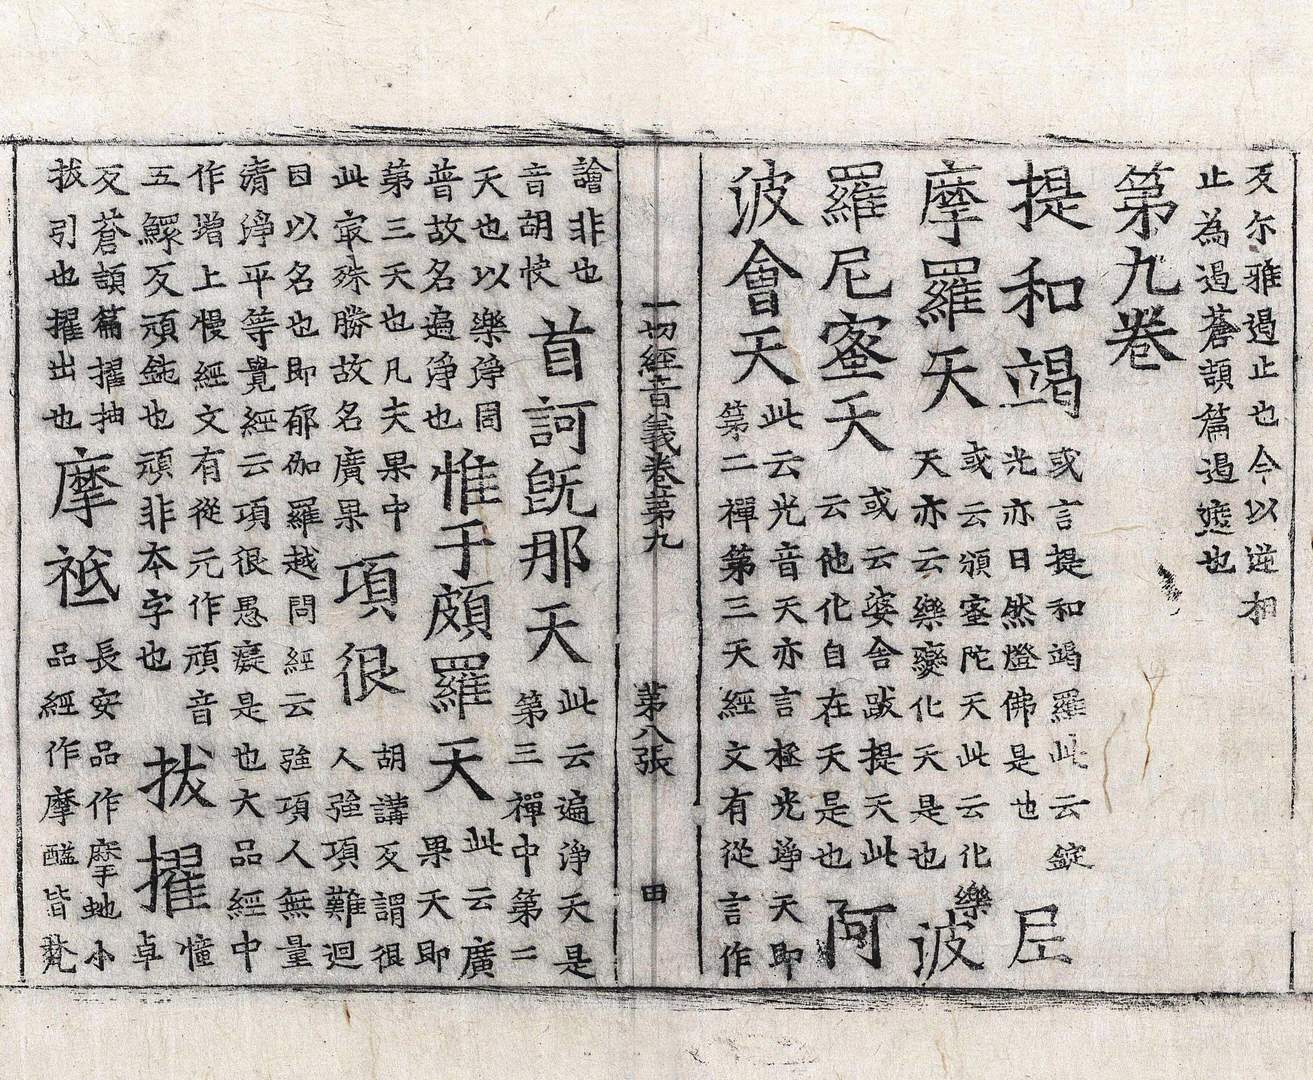 反尔雅遏止也今以逆相
止為遏蒼頡篇遏遮也
第九卷
提和竭
或言提和竭羅此云錠
光亦曰然燈佛是也
尼
摩羅天
或云須蜜陀天此云化樂
天亦云樂變化天是也
波
羅尼蜜天
或云婆舍跋提天此
云他化自在天是也
阿
波會天
此云光音天亦言極光淨天即
第二禪第三天經文有從言作
一切經音義卷第九 第八張 田
譮非也
音胡快
首訶旣那天
此云遍淨天是
第三禪中第二
天也以樂淨周
普故名遍淨也
惟于頗羅天
此云廣
果天即
第三天也凡夫果中
此㝡殊勝故名廣果
項很
胡講反謂很
人強項難迴
因以名也即郁伽羅越問經云強項人無量
清淨平等覺經云項很愚癡是也大品經中
作增上慢經文有從元作頑音
五鰥反頑鈍也頑非本字也
拔擢
憧
卓
反蒼頡篇擢抽
拔引也擢出也
摩祇
長安品作摩虵小
品經作摩醯皆梵